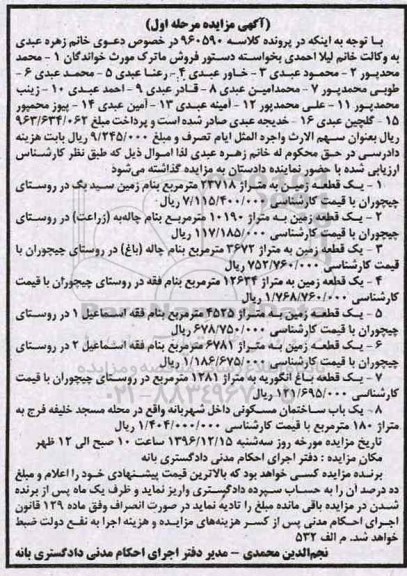 (آگهی مزایده مرحله اول)
با توجه به اینکه در پرونده کلاسه ۹۶۰۵۹۰ در خصوص دعوی خانم زهره عبدی
به وکالت خانم لیلا احمدی بخواسته دستور فروش ماترک مورث خواندگان ۱ - محمد
محدپور ۲ - محمود عبدی ۳ - خاور عبدی ۴ - رعنا عبدی ۵ - محمد عبدی ۶ -
طوبی محمدپور ۷ - محمدامین عبدی ۸ - قادر عبدی ۹ - احمد عبدی ۱۰ - زینب
محمدپور ۱۱ - علی محمدپور ۱۲ - آمینه عبدی ۱۳ - آمین عبدی ۱۴ - پیوز محمپور
۱۵ - گلچین عبدی ۱۶ - خدیجه عبدی صادر شده است و پرداخت مبلغ ۹۶۳/۶۳۴/۰۶۲
ریال بعنوان سهم الارث واجره المثل ایام تصرف و مبلغ ۹/۲۴۵/۰۰۰ ریال بابت هزینه
دادرسی در حق محکوم له خانم زهره عبدی لذا اموال ذیل که طبق نظر کارشناس
ارزیابی شده با حضور نماینده دادستان به مزایده گذاشته می‌شود
۱ - یک قطعه زمین به متراژ ۲۳۷۱۸ مترمربع بنام زمین سید بگ در روستای
چیچوران با قیمت کارشناسی ۷/۱۱۵/۴۰۰/۰۰۰ ریال
۲ - یک قطعه زمین به متراژ ۱۰۱۹۰ مترمربع بنام چاله‌به (زراعت) در روستای
چیچوران با قیمت کارشناسی ۱۱۷/۱۸۵/۰۰۰ ریال
۳ - یک قطعه زمین به متراژ ۳۶۷۲ مترمربع بنام چاله (باغ) در روستای چیچوران با
قیمت کارشناسی ۷۵۲/۷۶۰/۰۰۰ ریال
۴ - یک قطعه زمین به متراژ ۱۲۶۳۴ مترمربع بنام فقه در روستای چیچوران با قیمت
کارشناسی ۱/۷۶۸/۷۶۰/۰۰۰ ریال
۵ - یک قطعه زمین به متراژ ۴۵۲۵ مترمربع بنام فقه اسماعیل ۱ در روستای
چیچوران با قیمت کارشناسی ۶۷۸/۷۵۰/۰۰۰ ریال
۶ - یک قطعه زمین به متراژ ۶۷۸۱ مترمربع بنام فقه اسماعیل ۲ در روستای
چیچوران با قیمت کارشناسی ۱/۱۸۶/۶۷۵/۰۰۰ ریال
۷ - یک قطعه باغ انگوریه به متراژ ۱۲۸۱ مترمربع در روستای چیچوران با قیمت
کارشناسی ۱۲۱/۶۹۵/۰۰۰ ریال
۸ - یک باب ساختمان مسکونی داخل شهربانه واقع در محله مسجد خلیفه فرج به
متراژ ۱۸۰ مترمربع با قیمت کارشناسی ۱/۴۰۴/۰۰۰/۰۰۰ ریال
تاریخ مزایده مورخه روز سه‌شنبه ۱۳۹۶/۱۲/۱۵ ساعت ۱۰ صبح الی ۱۲ ظهر
مکان مزایده : دفتر اجرای احکام مدنی دادگستری بانه
برنده مزایده کسی خواهد بود که بالاترین قیمت پیشنهادی خود را اعلام و مبلغ
ده درصد آن را به حساب سپرده دادگستری واریز نماید و ظرف یک ماه پس از برنده
شدن در مزایده باقی مانده مبلغ را تادیه نماید در صورت انصراف وفق ماده ۱۲۹ قانون
اجرای احکام مدنی پس از کسر هزینه‌های مزایده و هزینه اجرا به نفع دولت ضبط
خواهد شد. م الف ۵۳۲
نجم‌الدین محمدی - مدیر دفتر اجرای احکام مدنی دادگستری بانه